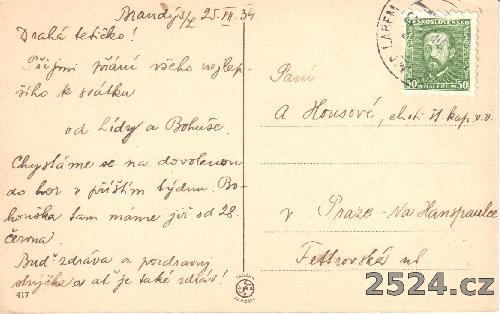 Brandýs/L 25.VII.34
Drahá tetičko!
Přijmi přání všeho nejlep-
šího k svátku
od Lídy a Bohuše.
Chystáme se na dovolenou
do hor v příštím týdnu. Bo-
houška tam máme již od 28.
června.
Buď zdráva a pozdravuj
strýčka a ať je také zdráv!
417
LABEM
ČESKOSLOVENSKO
50 HALÉŘŮ 50
Paní
A Housové, choti št. kap. v.v.
v Praze - Na Hanspaulce
ul
2524.cz